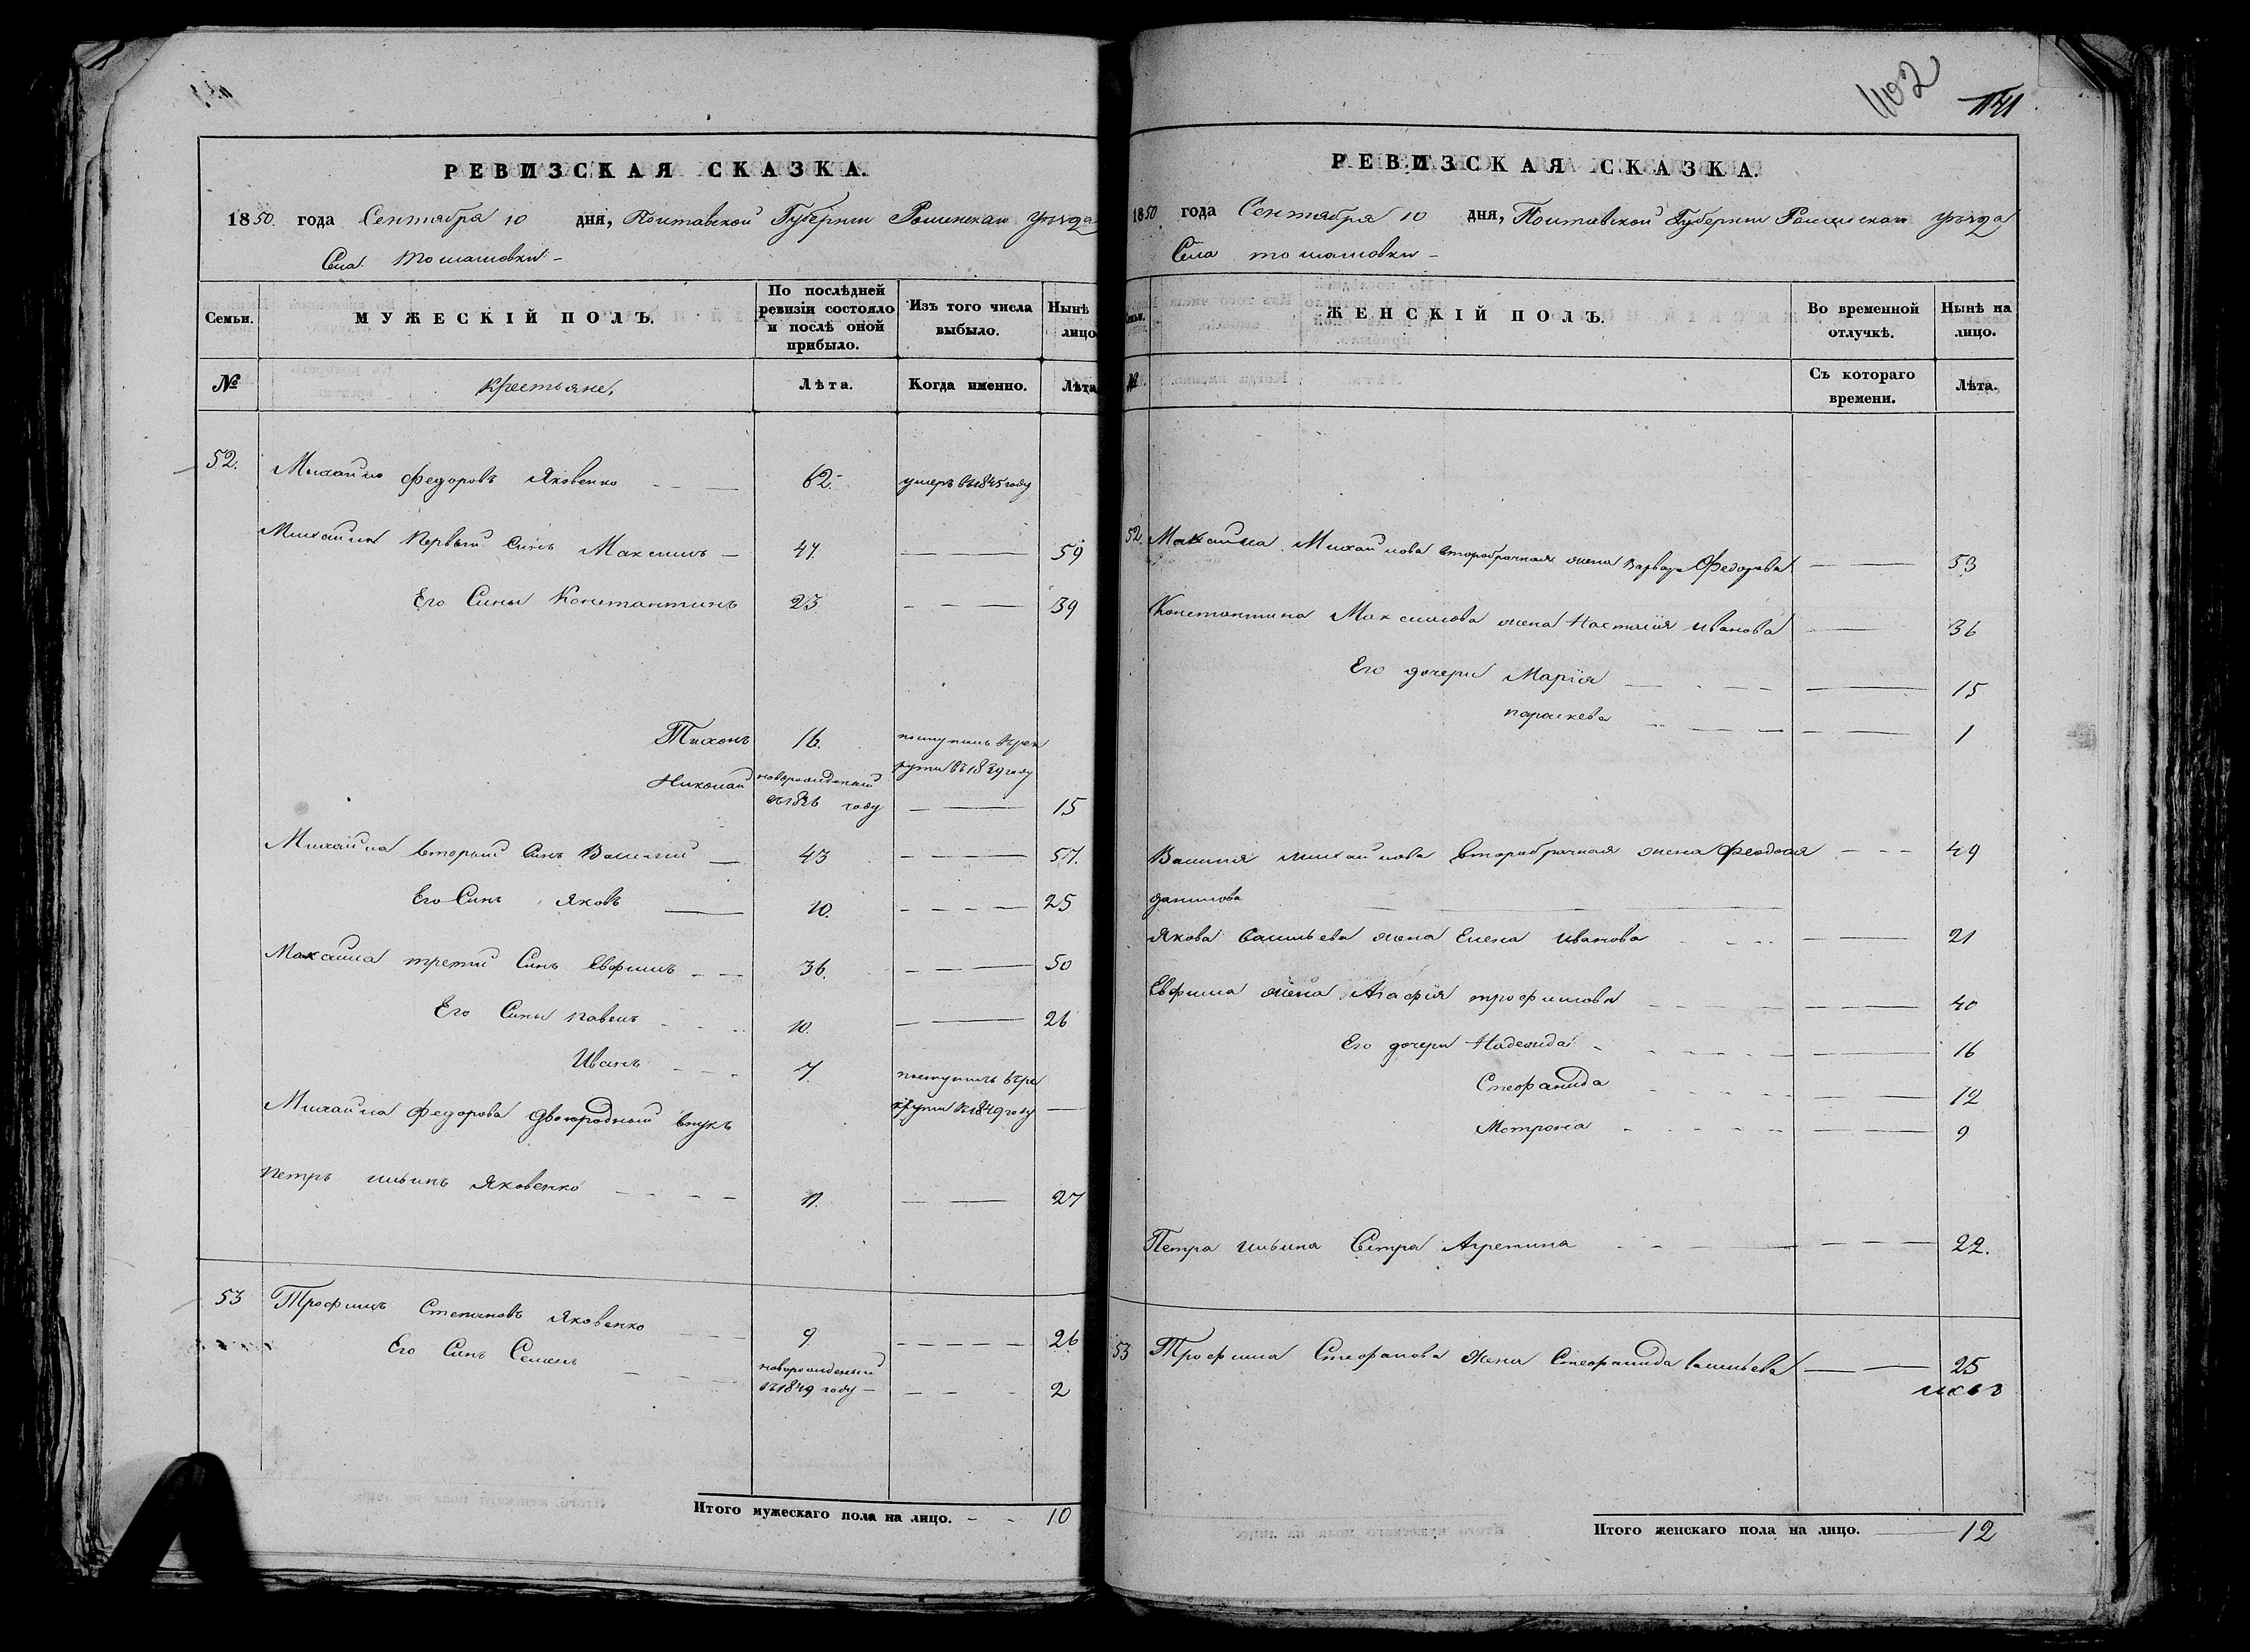 1102
1141
РЕВИЗСКАЯ СКАЗКА.
1850. года Сентября 10 дня, Полтавской Губернии Роменскаго уѣзда
Села Томашовки
Семьи.
МУЖЕСКІЙ ПОЛЪ.
По послѣдней ревизіи состояло и послѣ оной прибыло.
Изъ того числа выбыло.
Нынѣ лицо
№
Крестьяне,
Лѣта.
Когда именно.
Лѣта
52. Михайло Федоровъ Яковенко 62. умеръ въ 1845 году
Михайла первый Сынъ Максимъ 47. 59
Его Сыны Константинъ 23 39
Тихонъ 16. поступилъ въ рек
руты въ 1839 году
Николай новорожденный
15
Михайла вторый Сынъ Василий 43 57.
Его Сынъ Яковъ 10. 25
третий Сынъ Евфимъ 36. 50
Его Сыны Павелъ 10. 26
Иванъ 7. поступилъ въ ре
круты въ 1849 году
Михайла Федорова двоюродный внукъ
Петръ Ильинъ Яковенко 11. 27
53 Трофимъ Степановъ Яковенко 9 26
Его Сынъ Семенъ новорожденый
въ 1849 году 2
Итого мужескаго пола на лицо. 10
РЕВИЗСКАЯ СКАЗКА.
1850 года Сентября 10 дня, Полтавской Губернии Роменскаго уѣзда
Села Томашовки
ЖЕНСКІЙ ПОЛЪ.
Во временной отлучкѣ.
Нынѣ на лицо.
№
Съ котораго времени.
Лѣта.
52. Михайлова второбрачная жена Варвара Федорова 53
Константина Максимова жена Настасия Иванова 36
Его дочери Марія 15
Параскева 1
Василия Михайлова второбрачная жена Феодосия 49
Данилова
Якова Васильева жена Елена Иванова 21
Евфима жена Агафія Трофимова 40
Его дочери Надежда 16
Стефанида 12
Мотрона 9
Петра Ильина Сестра Агрепина 22.
53 Трофима Стефанова жена Стефанида Васильева 25
Итого женскаго пола на лицо. 12